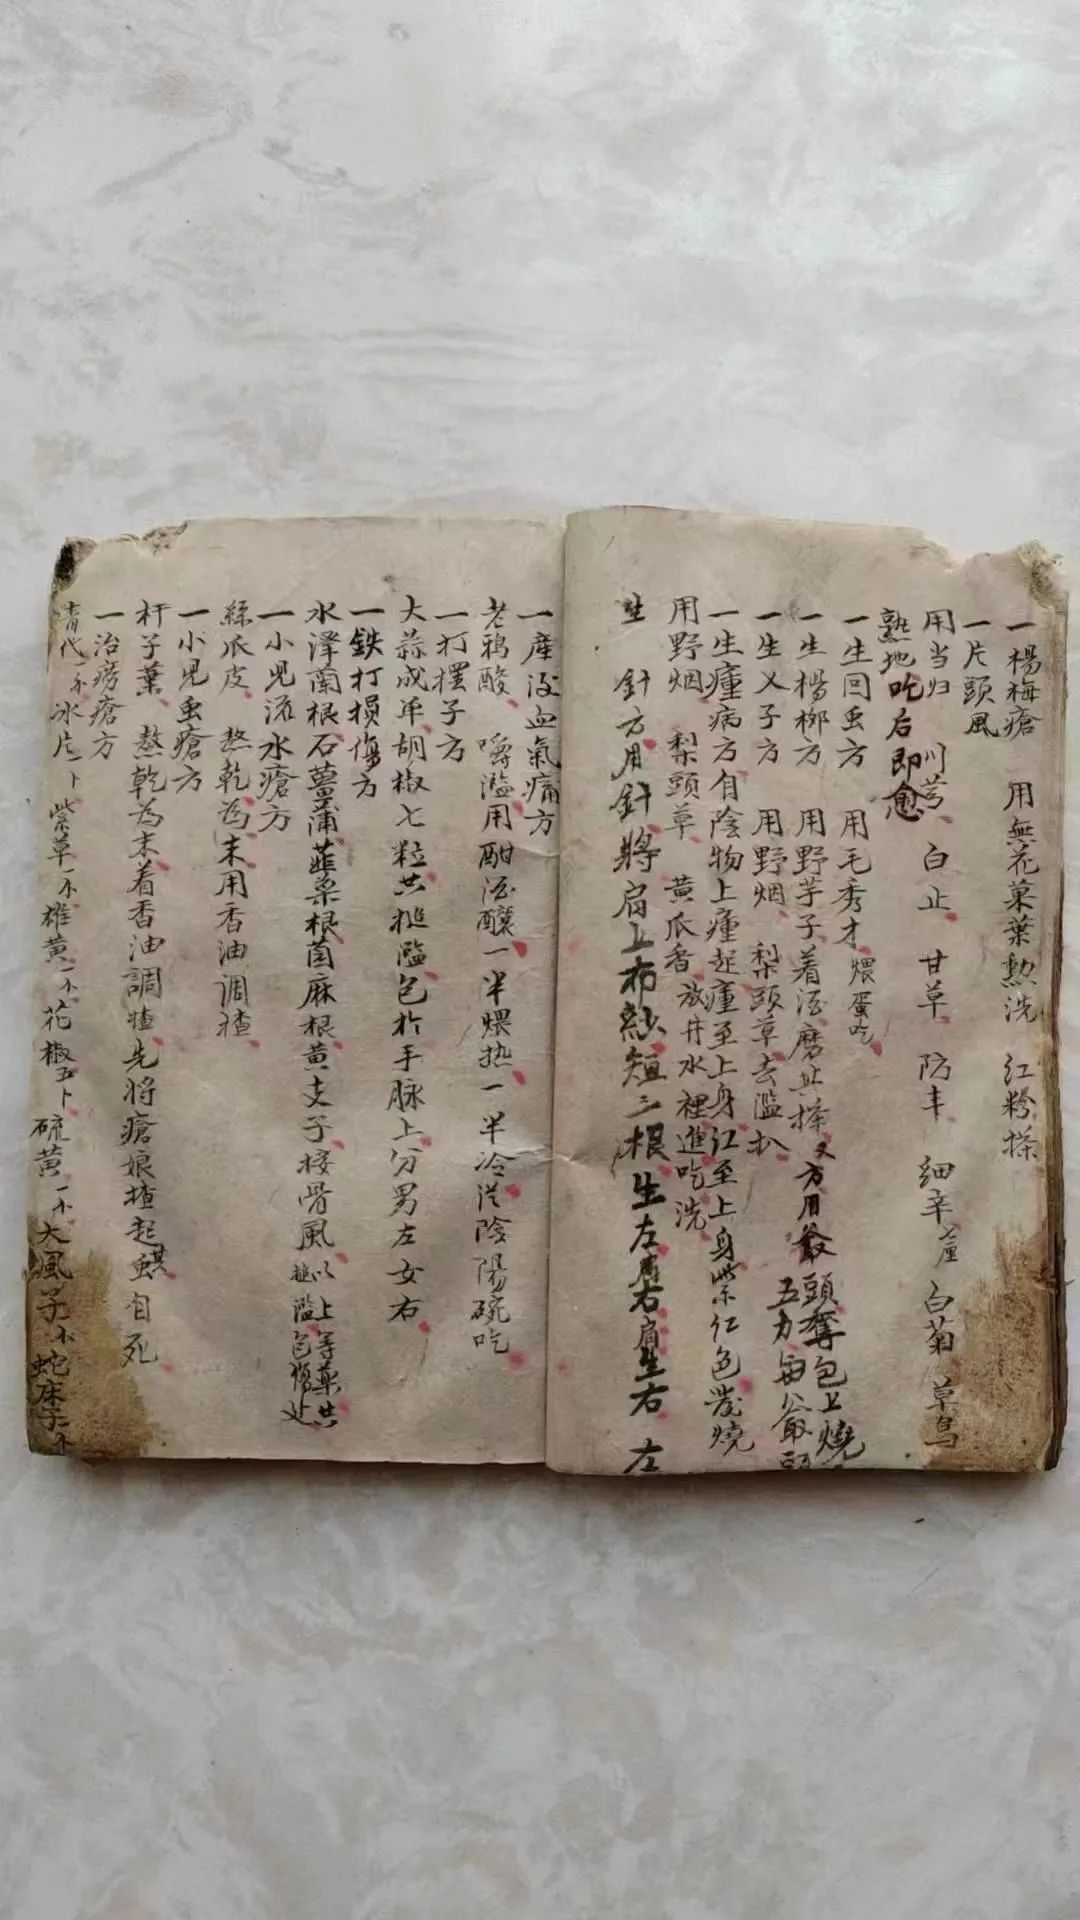 一楊梅瘡 用無花菓葉熏洗 红粉搽
一片頭風
用当归 川芎 白止 甘草 防丰 细辛七厘 白菊 草烏
熟地吃后即愈
一生回虫方 用毛秀才煨蛋吃
一生楊柳方 用野芋子着酒磨止搽 又方用 頭 包上燒
一生乂子方 用野烟 梨頭草去滥扒 五力
一生瘇病方自陰物上瘇起瘇至上身红至上身紫红色發燒
用野烟 梨頭草 黄瓜香放井水裡進吃洗
生 針方用針將肩上布紗短二根生左肩右肩生右 左
一産後血氣痛方
老鴉酸 嚼滥用甜酒釀一半煨热一半冷 陰陽碗吃
一打摆子方
大蒜成单胡椒七粒共搥滥包於手脉上分男左女右
一鉄打損傷方
水澤蘭根石薑蒲韮菜根茵麻根黄支子接骨風以上等藥共搥滥包傷处
一小児流水瘡方
絲瓜皮 熬乾為末用香油調搽
一小児虫瘡方
杆子葉 熬乾為末着香油調搽先將瘡娘搽起 自死
一治痨瘡方
青代一 冰片一卜紫草一 雄黄一 花椒五卜硫黄一 大風子 蛇床子